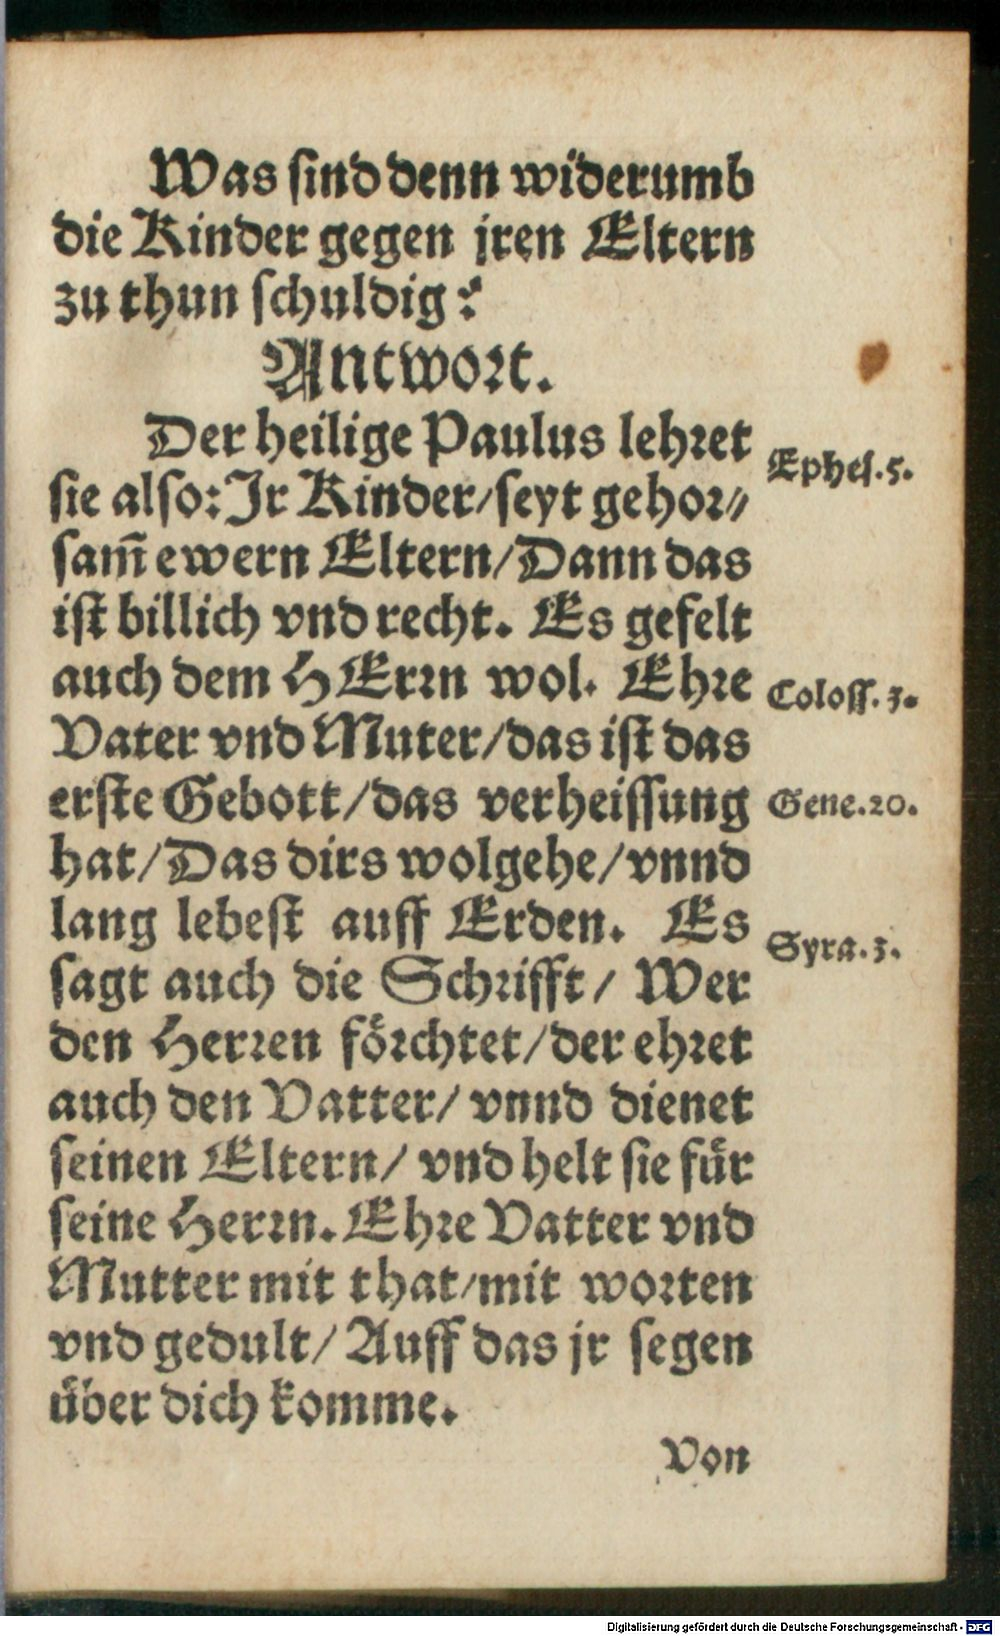 Was sind denn widerumb
die Kinder gegen jren Eltern
zu thun schuldig?
Antwort.
Der heilige Paulus lehret
Ephes. 5.
sie also: Jr Kinder/ seyt gehor-
sam̅ ewern Eltern/ Dann das
ist billich vnd recht. Es gefelt
auch dem HErrn wol. Ehre
Coloss. 3.
Vater vnd Muter/ das ist das
erste Gebott/ das verheissung
Gene. 20.
hat/ Das dirs wolgehe/ vnnd
lang lebest auff Erden. Es
Syra. 3.
sagt auch die Schrifft/ Wer
den Herren foͤrchtet/ der ehret
auch den Vatter/ vnnd dienet
seinen Eltern/ vnd helt sie fuͤr
seine Herrn. Ehre Vatter vnd
Mutter mit that/ mit worten
vnd gedult/ Auff das jr segen
uͤber dich komme.
Von
Digitalisierung gefördert durch die Deutsche Forschungsgemeinschaft - DFG